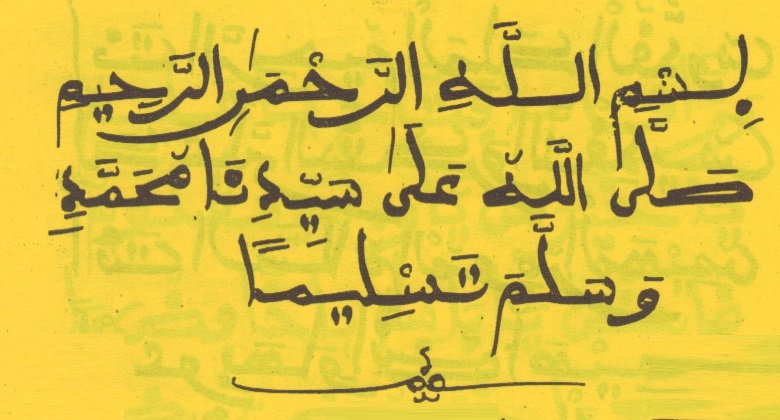 بِسْمِ اللَّهِ الرَّحْمَنِ الرَّحِيمِ
صَلَّى اللَّهُ عَلَى سَيِّدِنَا مُحَمَّدٍ
وَسَلَّمَ تَسْلِيمًا